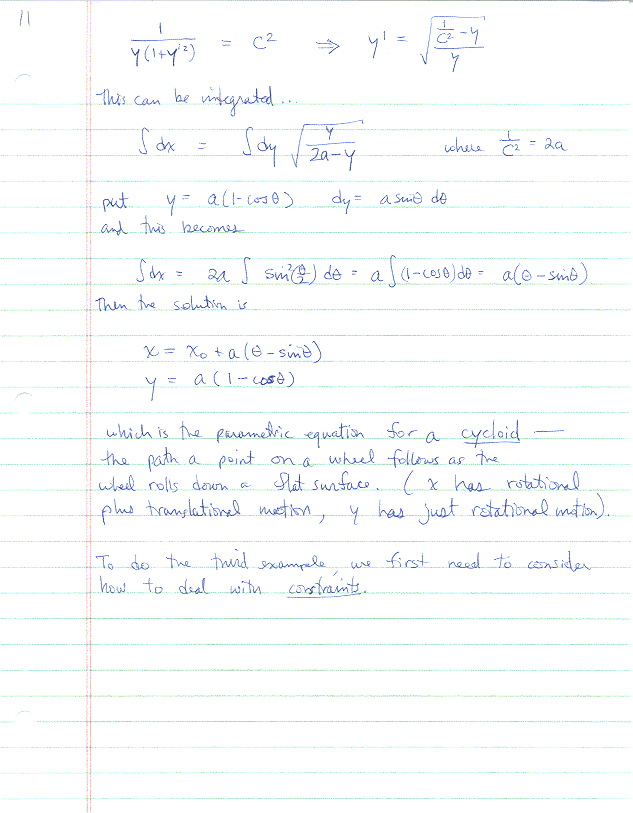 11
1/(y(1+y'²)) = C² ⇒ y' = √((1/C² - y)/y)
This can be integrated...
∫dx = ∫dy √(y/(2a-y)) where 1/C² = 2a
put y = a(1-cosθ) dy = a sinθ dθ
and this becomes
∫dx = 2a ∫ sin²(θ/2) dθ = a∫(1-cosθ)dθ = a(θ-sinθ)
Then the solution is
x = x₀ + a(θ-sinθ)
y = a(1-cosθ)
which is the parametric equation for a cycloid —
the path a point on a wheel follows as the
wheel rolls down a flat surface. (x has rotational
plus translational motion, y has just rotational motion).
To do the third example, we first need to consider
how to deal with constraints.